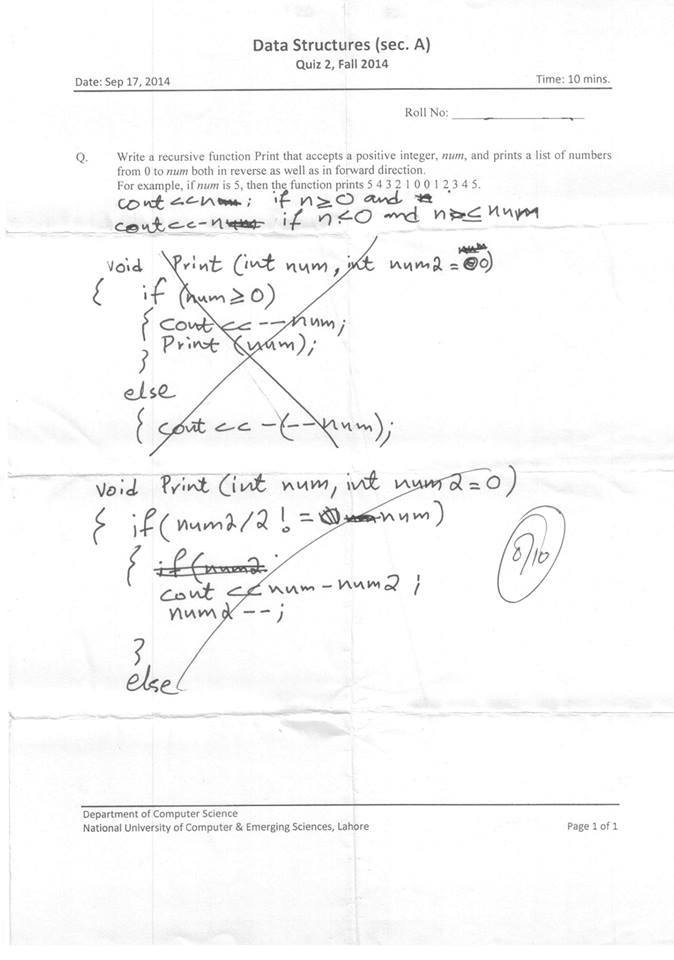 Data Structures (sec. A)
Quiz 2, Fall 2014
Date: Sep 17, 2014 Time: 10 mins.
Roll No:
Q. Write a recursive function Print that accepts a positive integer, num, and prints a list of numbers
from 0 to num both in reverse as well as in forward direction.
For example, if num is 5, then the function prints 5 4 3 2 1 0 0 1 2 3 4 5.
cout << n ; if n ≥ 0 and
cout << -n if n < 0 and n ≤ num
void Print (int num, int num2 = 0)
{ if (num ≥ 0)
{ cout << --num;
Print (num);
}
else
{ cout << -(--num);
void Print (int num, int num2 = 0)
{ if (num2/2 != num)
{ if (num2
cout << num - num2 ;
num2 --;
}
else
0/10
Department of Computer Science
National University of Computer & Emerging Sciences, Lahore Page 1 of 1